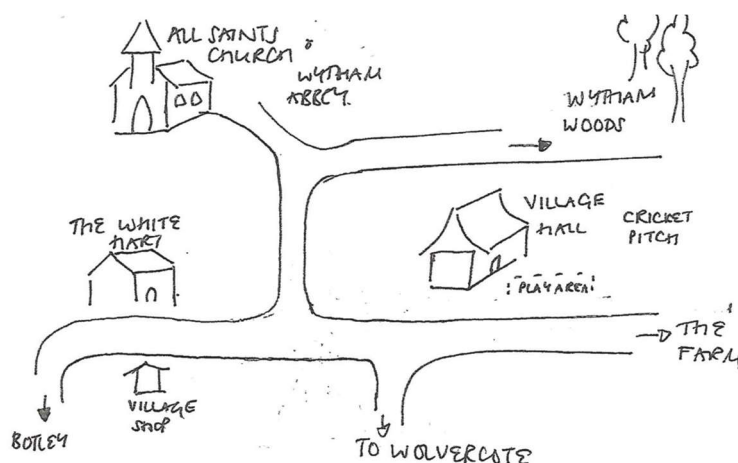 ALL SAINTS
CHURCH &
WYTHAM
ABBEY
WYTHAM
WOODS
THE WHITE
HART
VILLAGE
HALL
CRICKET
PITCH
PLAY AREA
THE
FARM
VILLAGE
SHOP
BOTLEY
TO WOLVERCOTE